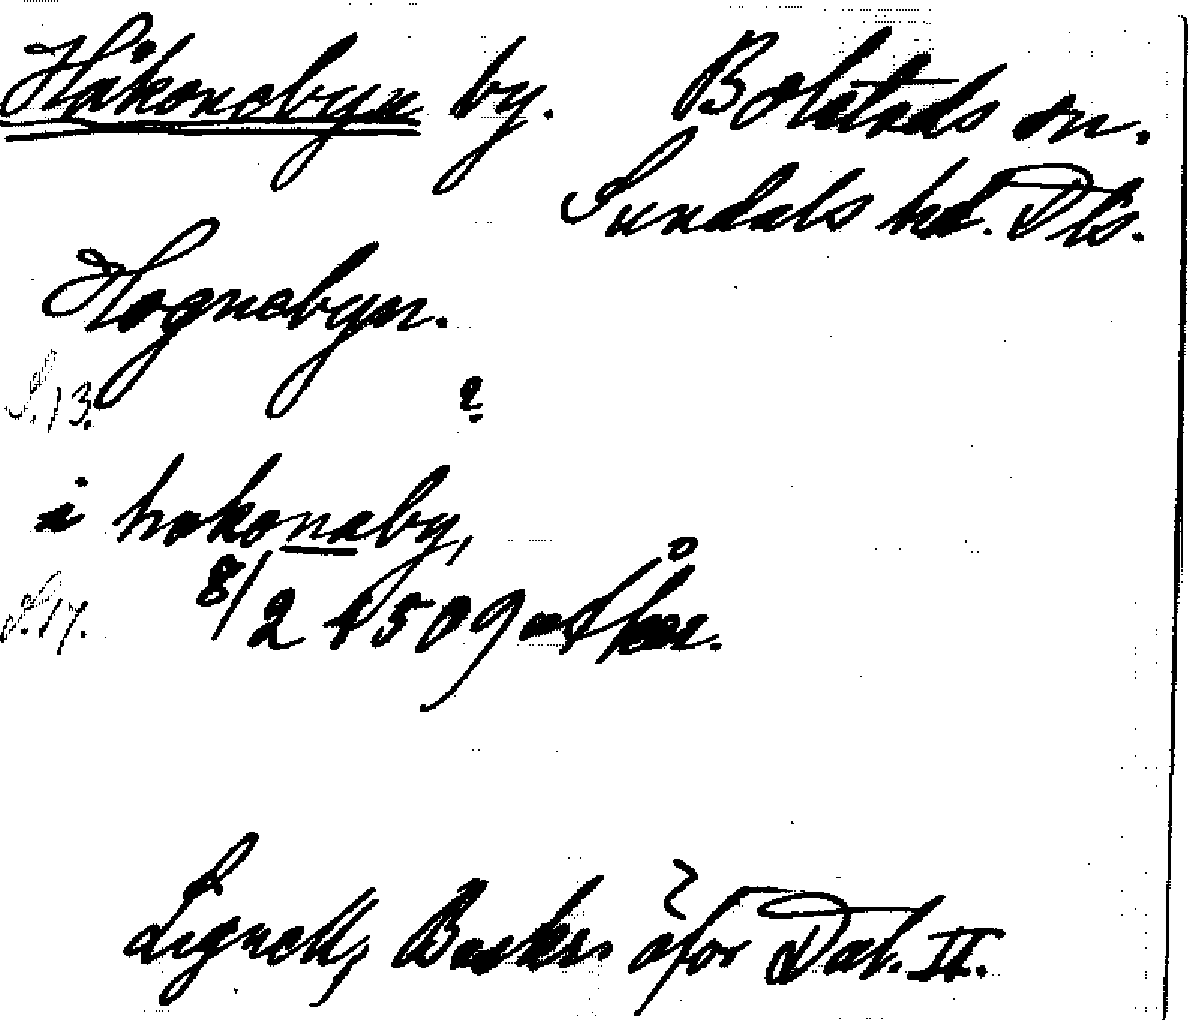 Håkonebyn by. Bolstads sn.
Sundals hd. Dls.
Hognebyn.
S. 13. ?
i hokonaby,
S. 17. 8/2 1509 or.
Lignell, Beskr. öfver Dal. II.